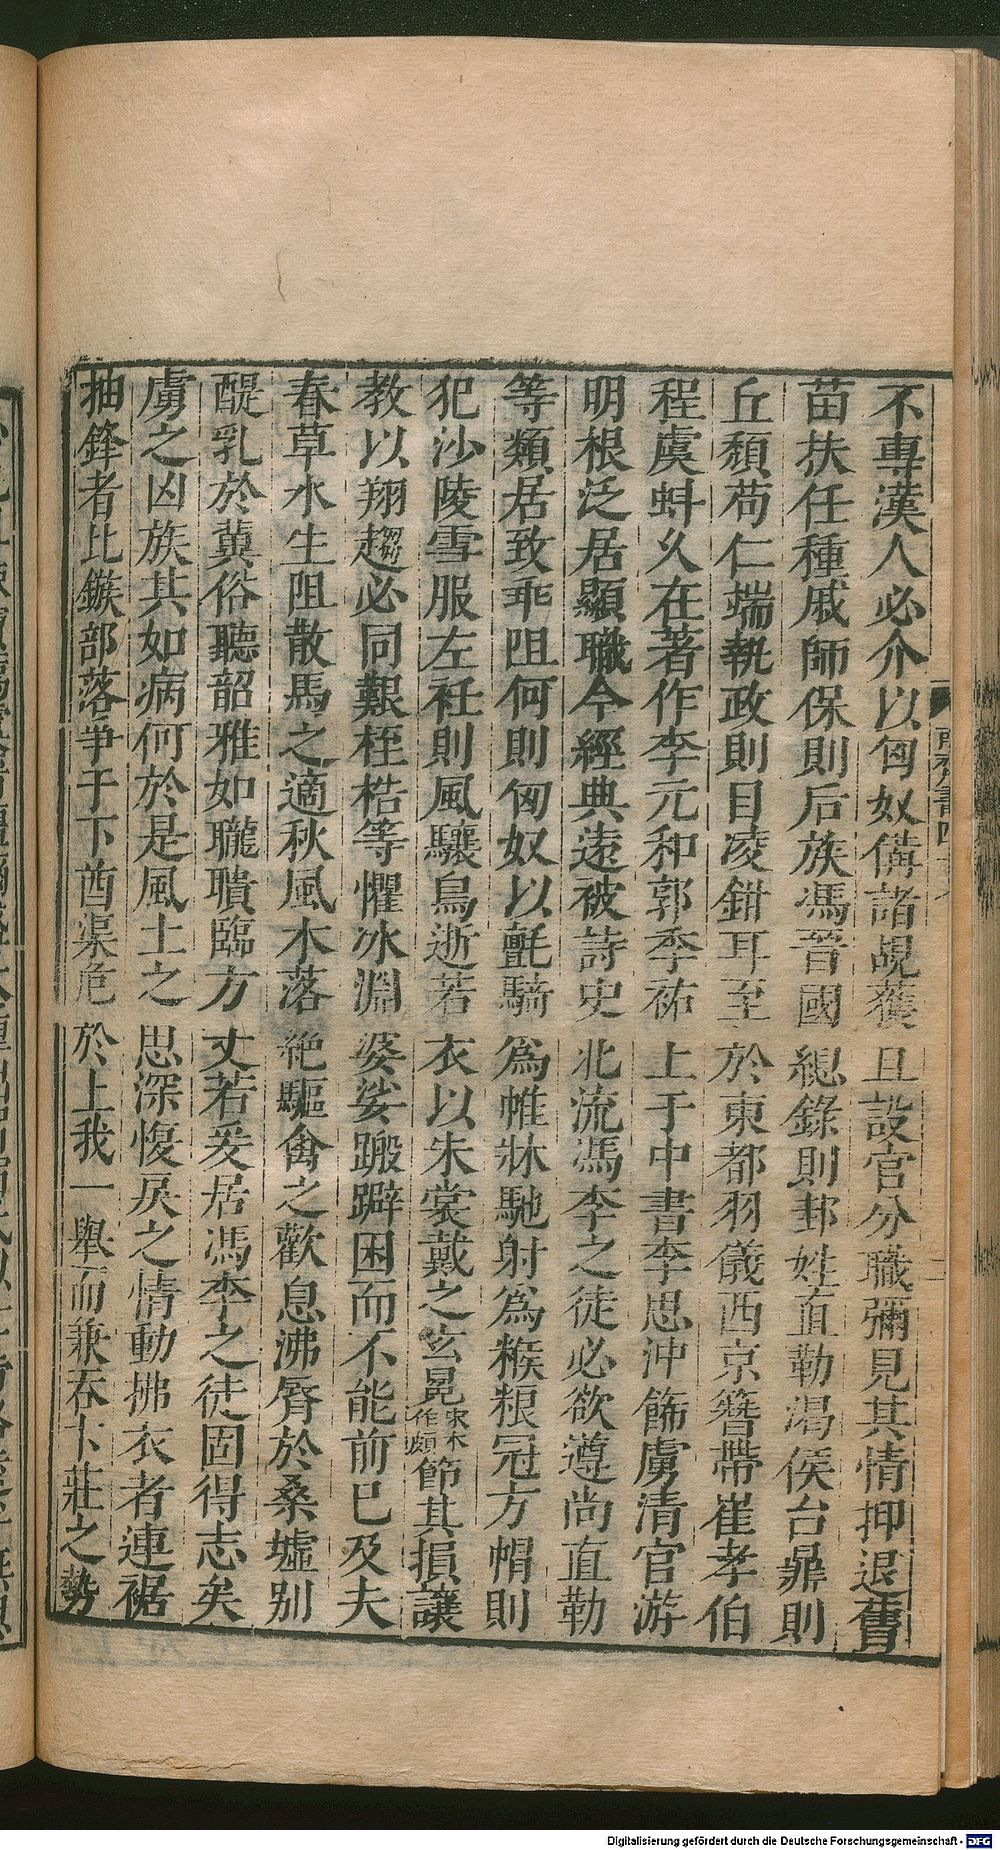 不專漢人必介以匈奴備諸覘獲且設官分職彌見其情抑退舊
苗扶任種戚師保則后族馮晉國總錄則邽姓直勒渴侯台鼎則
丘頹苟仁端執政則目凌鉗耳至於東都羽儀西京簪帶崔孝伯
程虞蚪久在著作李元和郭季祐上于中書李思沖飾虜清官游
明根泛居顯職今經典遠被詩史北流馮李之徒必欲遵尚直勒
等類居致乖阻何則匈奴以氈騎為帷牀馳射為糇粮冠方帽則
犯沙陵雪服左衽則風驤鳥逝若衣以朱裳戴之玄冕宋本作頍節其損讓
教以翔趨必同艱桎梏等懼冰淵婆娑蹣躃困而不能前已及夫
春草水生阻散馬之適秋風木落絶驅禽之歡息沸脣於桑墟别
醍乳於冀俗聽韶雅如聾聵臨方丈若爰居馮李之徒固得志矣
虜之凶族其如病何於是風土之思深愎戾之情動拂衣者連裾
抽鋒者比鏃部落爭于下酋渠危於上我一舉而兼吞卞莊之勢
Digitalisierung gefördert durch die Deutsche Forschungsgemeinschaft - DFG